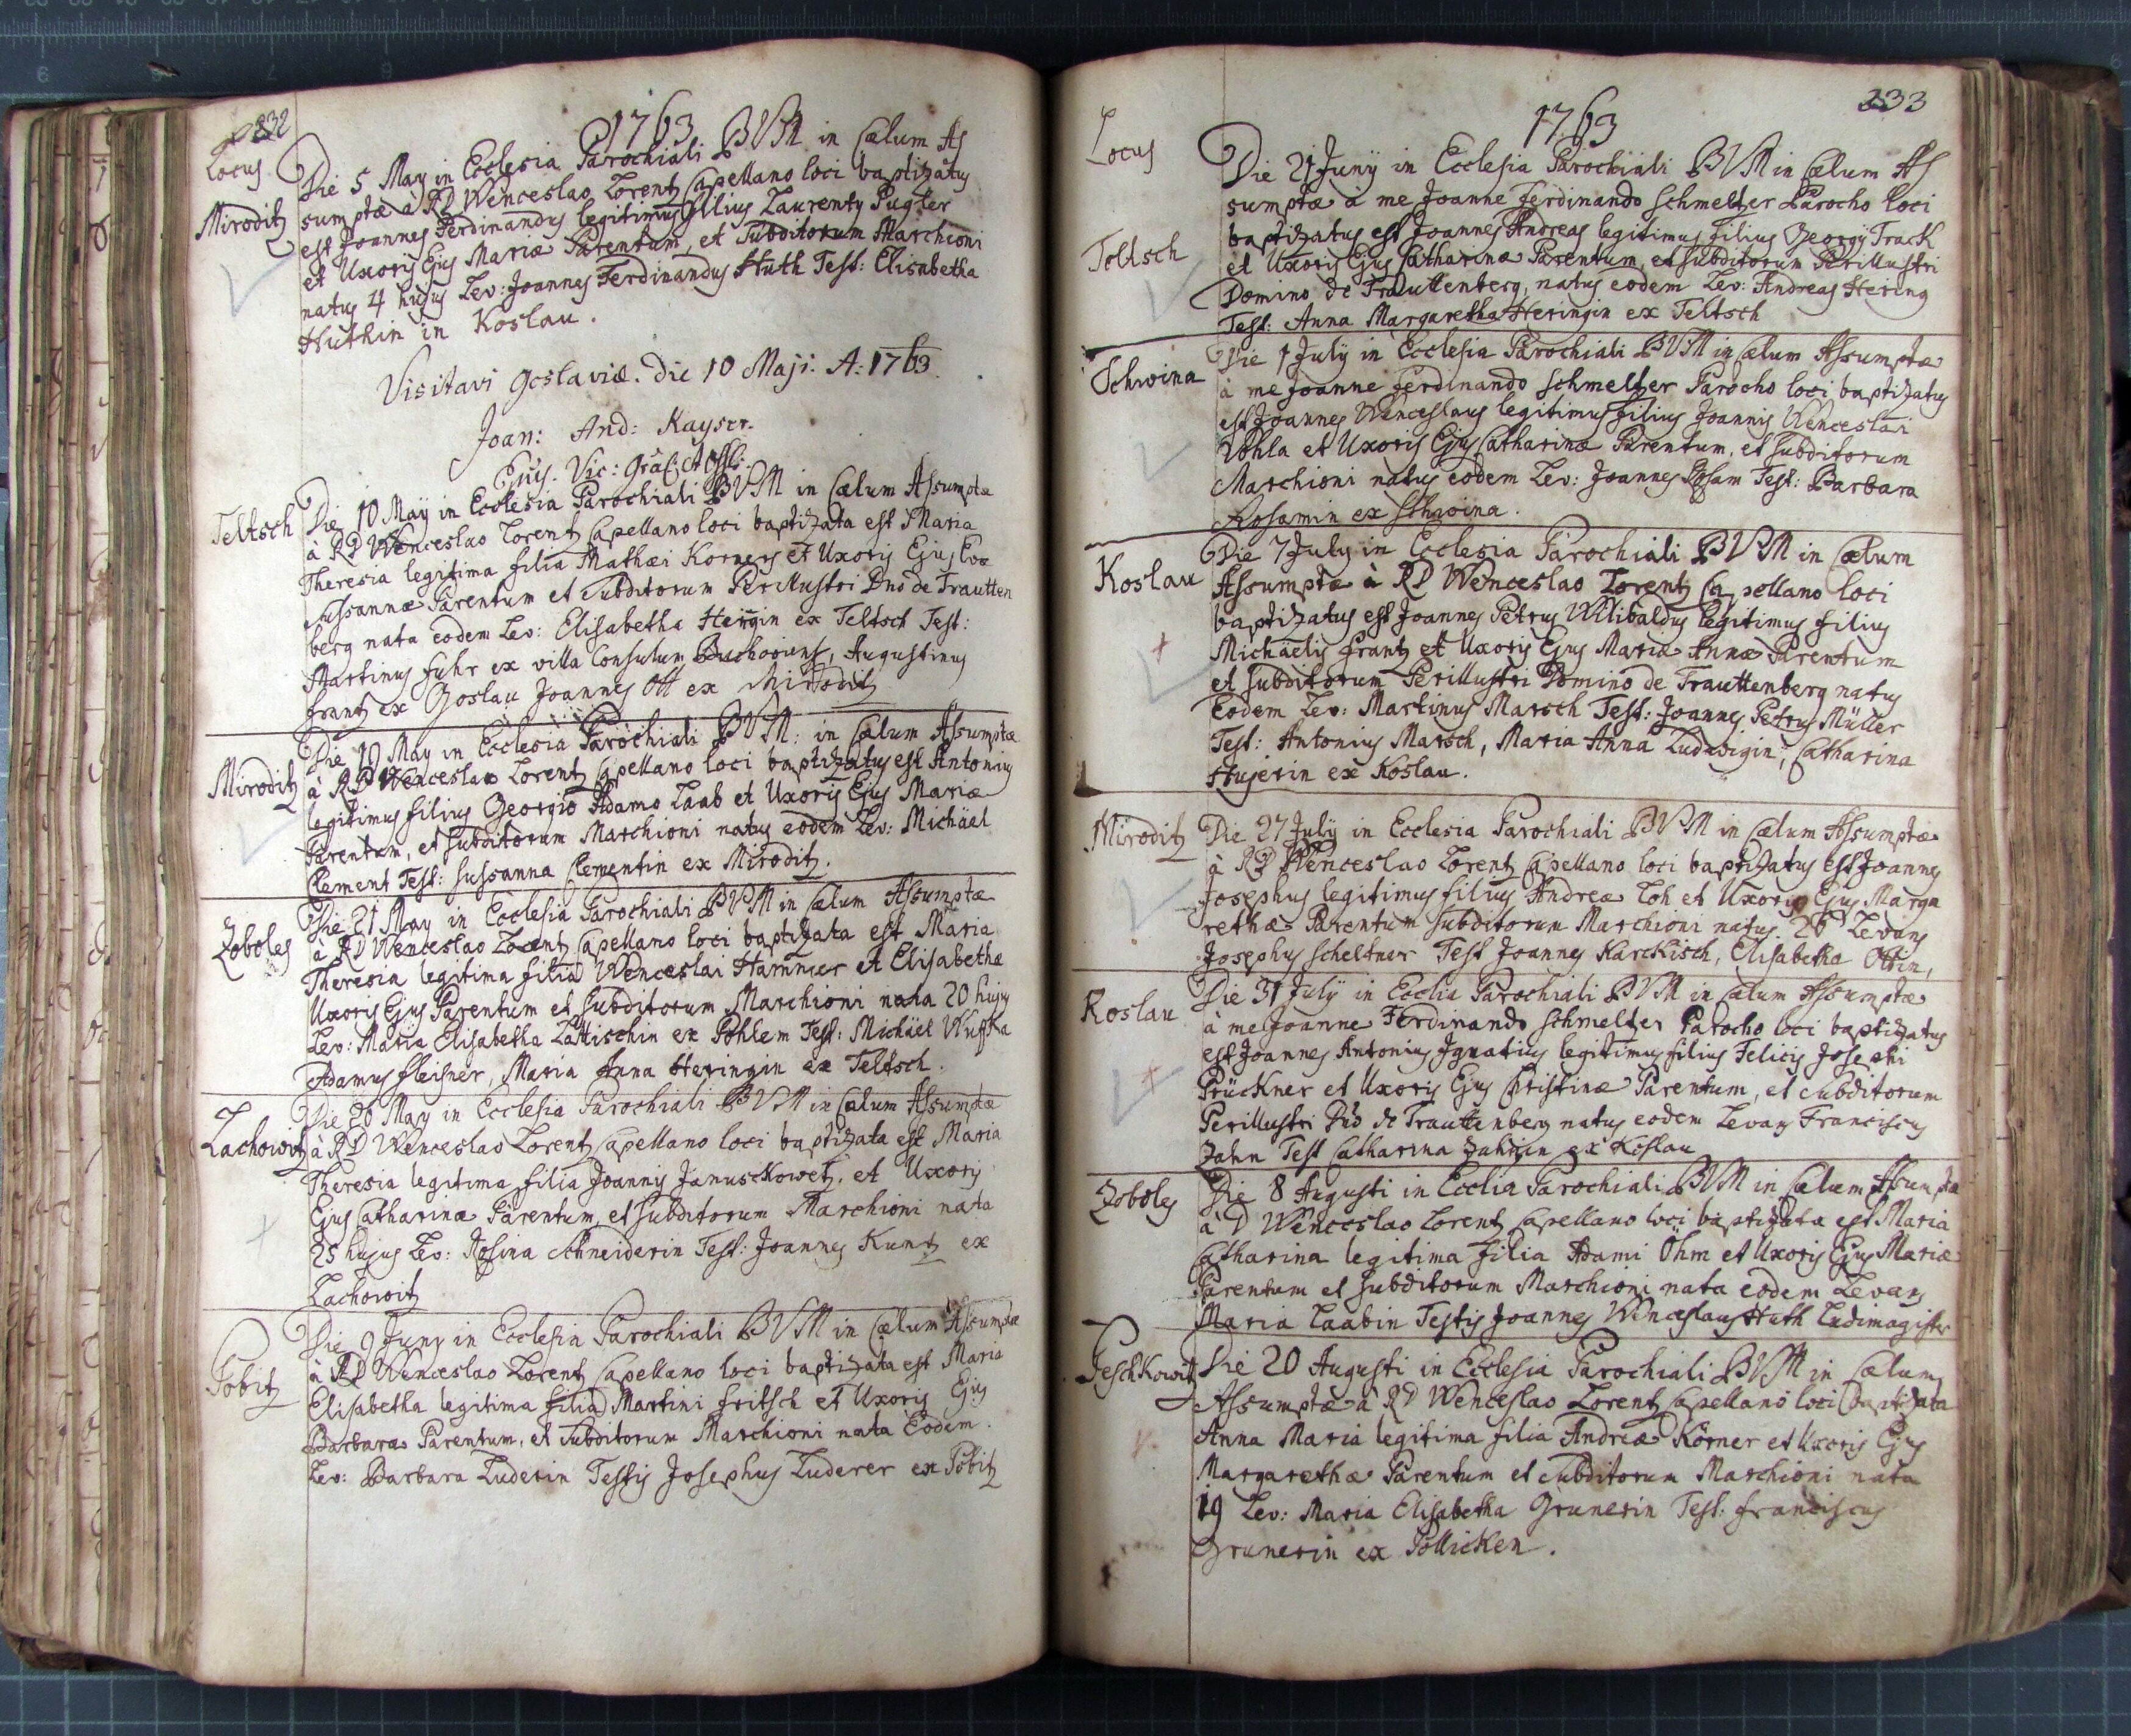 232
1763
Locus
Die 5 May in Ecclesia Parochiali BVM in Cælum As
Miroditz
sumptæ à RD Wenceslao Lorentz Capellano loci baptizatus
est Joannes Ferdinandus legitimus filius Laurenty Pugler
et Uxoris Ejus Mariæ Parentum, et Subditorum Marchioni
natus 4 hujus Lev: Joannes Ferdinandus Huth Test: Elisabetha
Huthin in Koslau.
Visitavi Goslaviæ. Die 10 Maji. A: 1763.
Joan: And: Kayser.
Ejus. Vic:
Teltsch
Die 10 May in Ecclesia Parochiali BVM in Cælum Assumptæ
à RD Wenceslao Lorentz Capellano loci baptizata est Maria
Theresia legitima filia Mathæi Korners et Uxoris Ejus Evæ
Sussannæ Parentum et Subditorum Perillustri Dno de Trautten
berg nata eodem Lev: Elisabetha Heringin ex Teltsch Test:
Martinus Fuhr ex villa Consulum Buchoviens, Augustinus
frantz ex Goslau Joannes Ott ex Miroditz
Miroditz
Die 10 May in Ecclesia Parochiali BVM: in Cælum Assumptæ
à RD Wenceslao Lorentz Capellano loci baptizatus est Antonius
legitimus filius Georgio Adamo Laab et Uxoris Ejus Mariæ
Parentum, et Subditorum Marchioni natus eodem Lev: Michäel
Clement Test: Sussanna Clementin ex Miroditz.
Zoboles
Die 21 May in Ecclesia Parochiali BVM in Cælum Assumptæ
à RD Wenceslao Lorentz Capellano loci baptizata est Maria
Theresia legitima filia Wenceslai Hammer et Elisabethæ
Uxoris Ejus Parentum et Subditorum Marchioni nata 20 hujus
Lev: Maria Elisabetha Lattischin ex Pohlem Test: Michäel Wuffka
Adamus fleisner, Maria Anna Heringin ex Teltsch.
Lachowitz
Die 26 May in Ecclesia Parochiali BVM in Cælum Assumptæ
à RD Wenceslao Lorentz Capellano loci baptizata est Maria
Theresia legitima filia Joannis Januschkowetz, et Uxoris
Ejus Catharinæ Parentum, et Subditorum Marchioni nata
25 hujus Lev: Rosina Schneiderin Test: Joannes Kuntz ex
Lachowitz
Pobitz
Die 9 Juny in Ecclesia Parochiali BVM in Cælum Assumptæ
à RD Wenceslao Lorentz Capellano loci baptizata est Maria
Elisabetha legitima filia Martini fritsch et Uxoris Ejus
Barbaræ Parentum, et Subditorum Marchioni nata Eodem.
Lev: Barbara Luderin Testis Josephus Luderer ex Pobitz
233
1763
Locus
Die 21 Junÿ in Ecclesia Parochiali BVM in Cælum As
sumptæ à me Joanne Ferdinando Schmeltzer Parocho loci
Teltsch
baptizatus est Joannes Andreas legitimus filius Georgÿ Track
et Uxoris Ejus Catharinæ Parentum, et Subditorum Perillustri
Domino de Trauttenberg, natus eodem Lev: Andreas Hering
Test: Anna Margaretha Heringin ex Teltsch
Schwina
Die 1 Julÿ in Ecclesia Parochiali BVM in Cælum Assumptæ
à me Joanne Ferdinando Schmeltzer Parocho loci baptizatus
est Joannes Wenceslaus legitimus filius Joannis Wenceslai
Wohla et Uxoris Ejus Catharinæ Parentum, et Subditorum
Marchioni natus eodem Lev: Joannes Rosam Test: Barbara
Rosamin ex Schwina.
Koslau
Die 7 July in Ecclesia Parochiali BVM in Cælum
Assumptæ à RD Wenceslao Lorentz Capellano loci
baptizatus est Joannes Petrus Wilibaldus legitimus filius
Michäelis frantz et Uxoris Ejus Mariæ Annæ Parentum
et Subditorum Perillustri Domino de Trauttenberg natus
Eodem Lev: Martinus Marsch Test: Joannes Petrus Müller
Test: Antonius Marsch, Maria Anna Ludwigin, Catharina
Hujerin ex Koslau.
Miroditz
Die 27 Julÿ in Ecclesia Parochiali BVM in Cælum Assumptæ
à RD Wenceslao Lorentz Capellano loci baptizatus est Joannes
Josephus legitimus filius Andreæ Loh et Uxoris Ejus Marga
rethæ Parentum Subditorum Marchioni natus. 26 Levans
Josephus Scheltner Test Joannes Karckisch, Elisabetha Ottin,
Koslau
Die 31 Julÿ in Ecclia Parochiali BVM in Cælum Assumptæ
à me Joanne Ferdinando Schmeltzer Parocho loci baptizatus
est Joannes Antonius Ignatius legitimus filius Felicis Josephi
Prückner et Uxoris Ejus Christinæ Parentum, et Subditorum
Perillustri Dno de Trauttenberg natus eodem Levans Franciscus
Zahn Test Catharina Zahnin ex Koslau
Zoboles
Die 8 Augusti in Ecclia Parochiali BVM in Cælum Assumptæ
à D Wenceslao Lorentz Capellano loci baptizata est Maria
Catharina legitima filia Adami Öhm et Uxoris Ejus Mariæ
Parentum et Subditorum Marchioni nata eodem Levans
Maria Laabin Testis Joannes Wenceslaus Huth Ludimagister
Peschkowitz
Die 20 Augusti in Ecclesia Parochiali BVM in Cælum
Assumptæ à RD Wenceslao Lorentz Capellano loci baptizata
Anna Maria legitima filia Andreæ Körner et Uxoris Ejus
Margarethæ Parentum et Subditorum Marchioni nata
19 Lev: Maria Elisabetha Grunerin Test: franciscus
Grunerin ex Pöllicken.